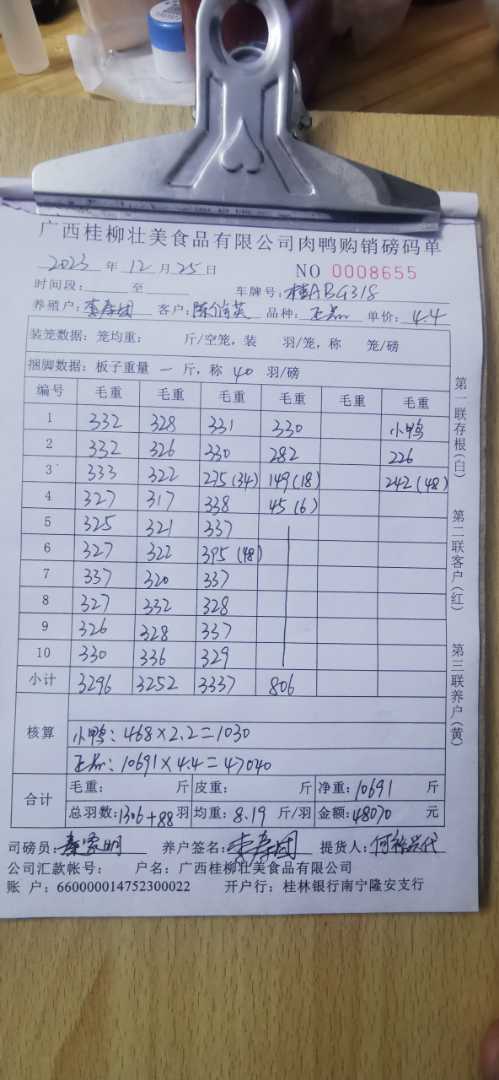 广西桂柳壮美食品有限公司肉鸭购销磅码单
2023 年 12 月 25 日 NO 0008655
时间段: 至 车牌号: 桂ABG318
养殖户: 客户: 品种: 正品 单价: 4.4
装笼数据: 笼均重: 斤/空笼, 装 羽/笼, 称 笼/磅
捆脚数据: 板子重量 一 斤, 称 40 羽/磅
编号 毛重 毛重 毛重 毛重 毛重 毛重
1 332 328 331 330 小鸭
2 332 326 330 282 226
3 333 322 275(34) 149(18) 242(48)
4 327 317 338 45(6)
5 325 321 337
6 327 322 395(48)
7 337 320 337
8 327 332 328
9 326 328 337
10 330 336 329
小计 3296 3252 3337 806
核算
小鸭: 468×2.2=1030
正品: 10691×4.4=47040
合计
毛重: 斤 皮重: 斤 净重: 10691 斤
总羽数: 1306+88 羽 均重: 8.19 斤/羽 金额: 48070 元
司磅员: 养户签名: 提货人:
公司汇款帐号: 户名: 广西桂柳壮美食品有限公司
账 户: 660000014752300022 开户行: 桂林银行南宁隆安支行
第一联存根(白)
第二联客户(红)
第三联养户(黄)